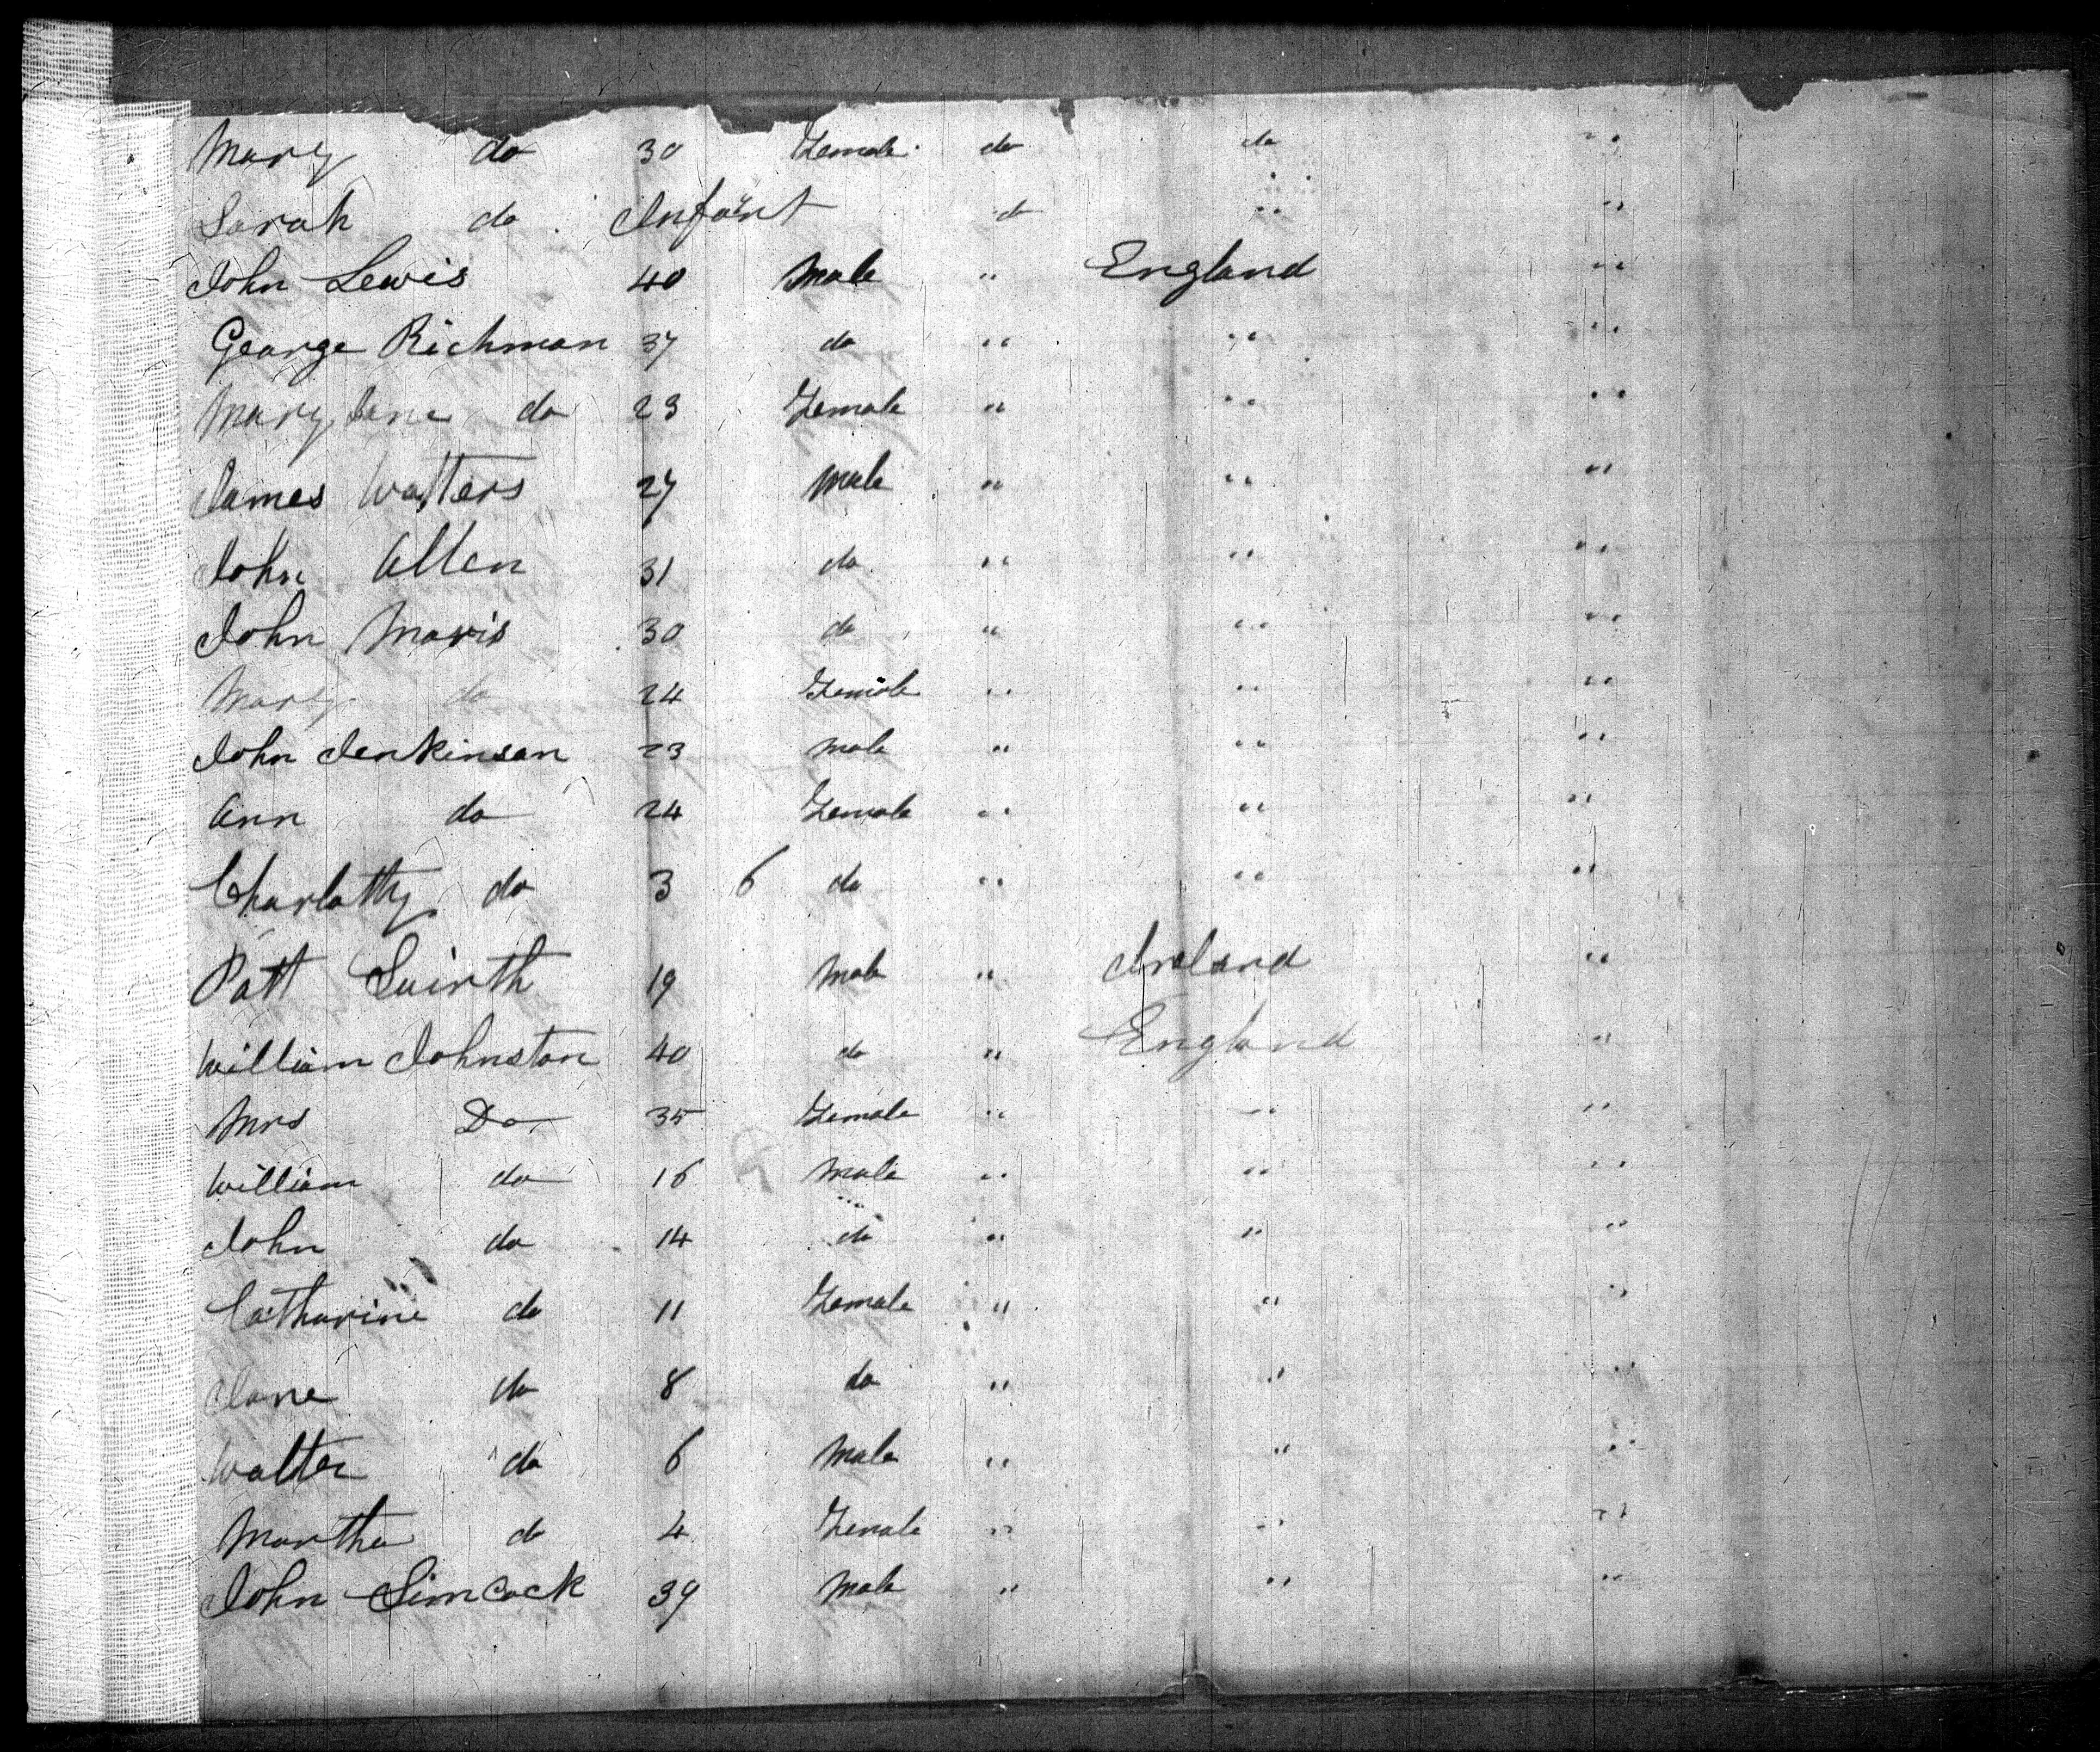 Mary do 30 Female do do " "
Sarah do Infant do " "
John Lewis 40 Male " England "
George Richman 37 do " " "
Mary Jane do 23 Female " " "
James Watters 27 Male " " "
John Allen 31 do " " "
John Maris 30 do " " "
Mary do 24 Female " " "
John Jenkinson 23 Male " " "
Ann do 24 Female " " "
Charlotty do 3 6 do " " "
Patt 19 Male " Ireland "
William Johnston 40 do " England "
Mrs Do 35 Female " " "
William do 16 Male " " "
John do 14 do " " "
Catharine do 11 Female " " "
Jane do 8 do " " "
Walter do 6 Male " " "
Martha do 4 Female " " "
John Simcock 39 Male " " "